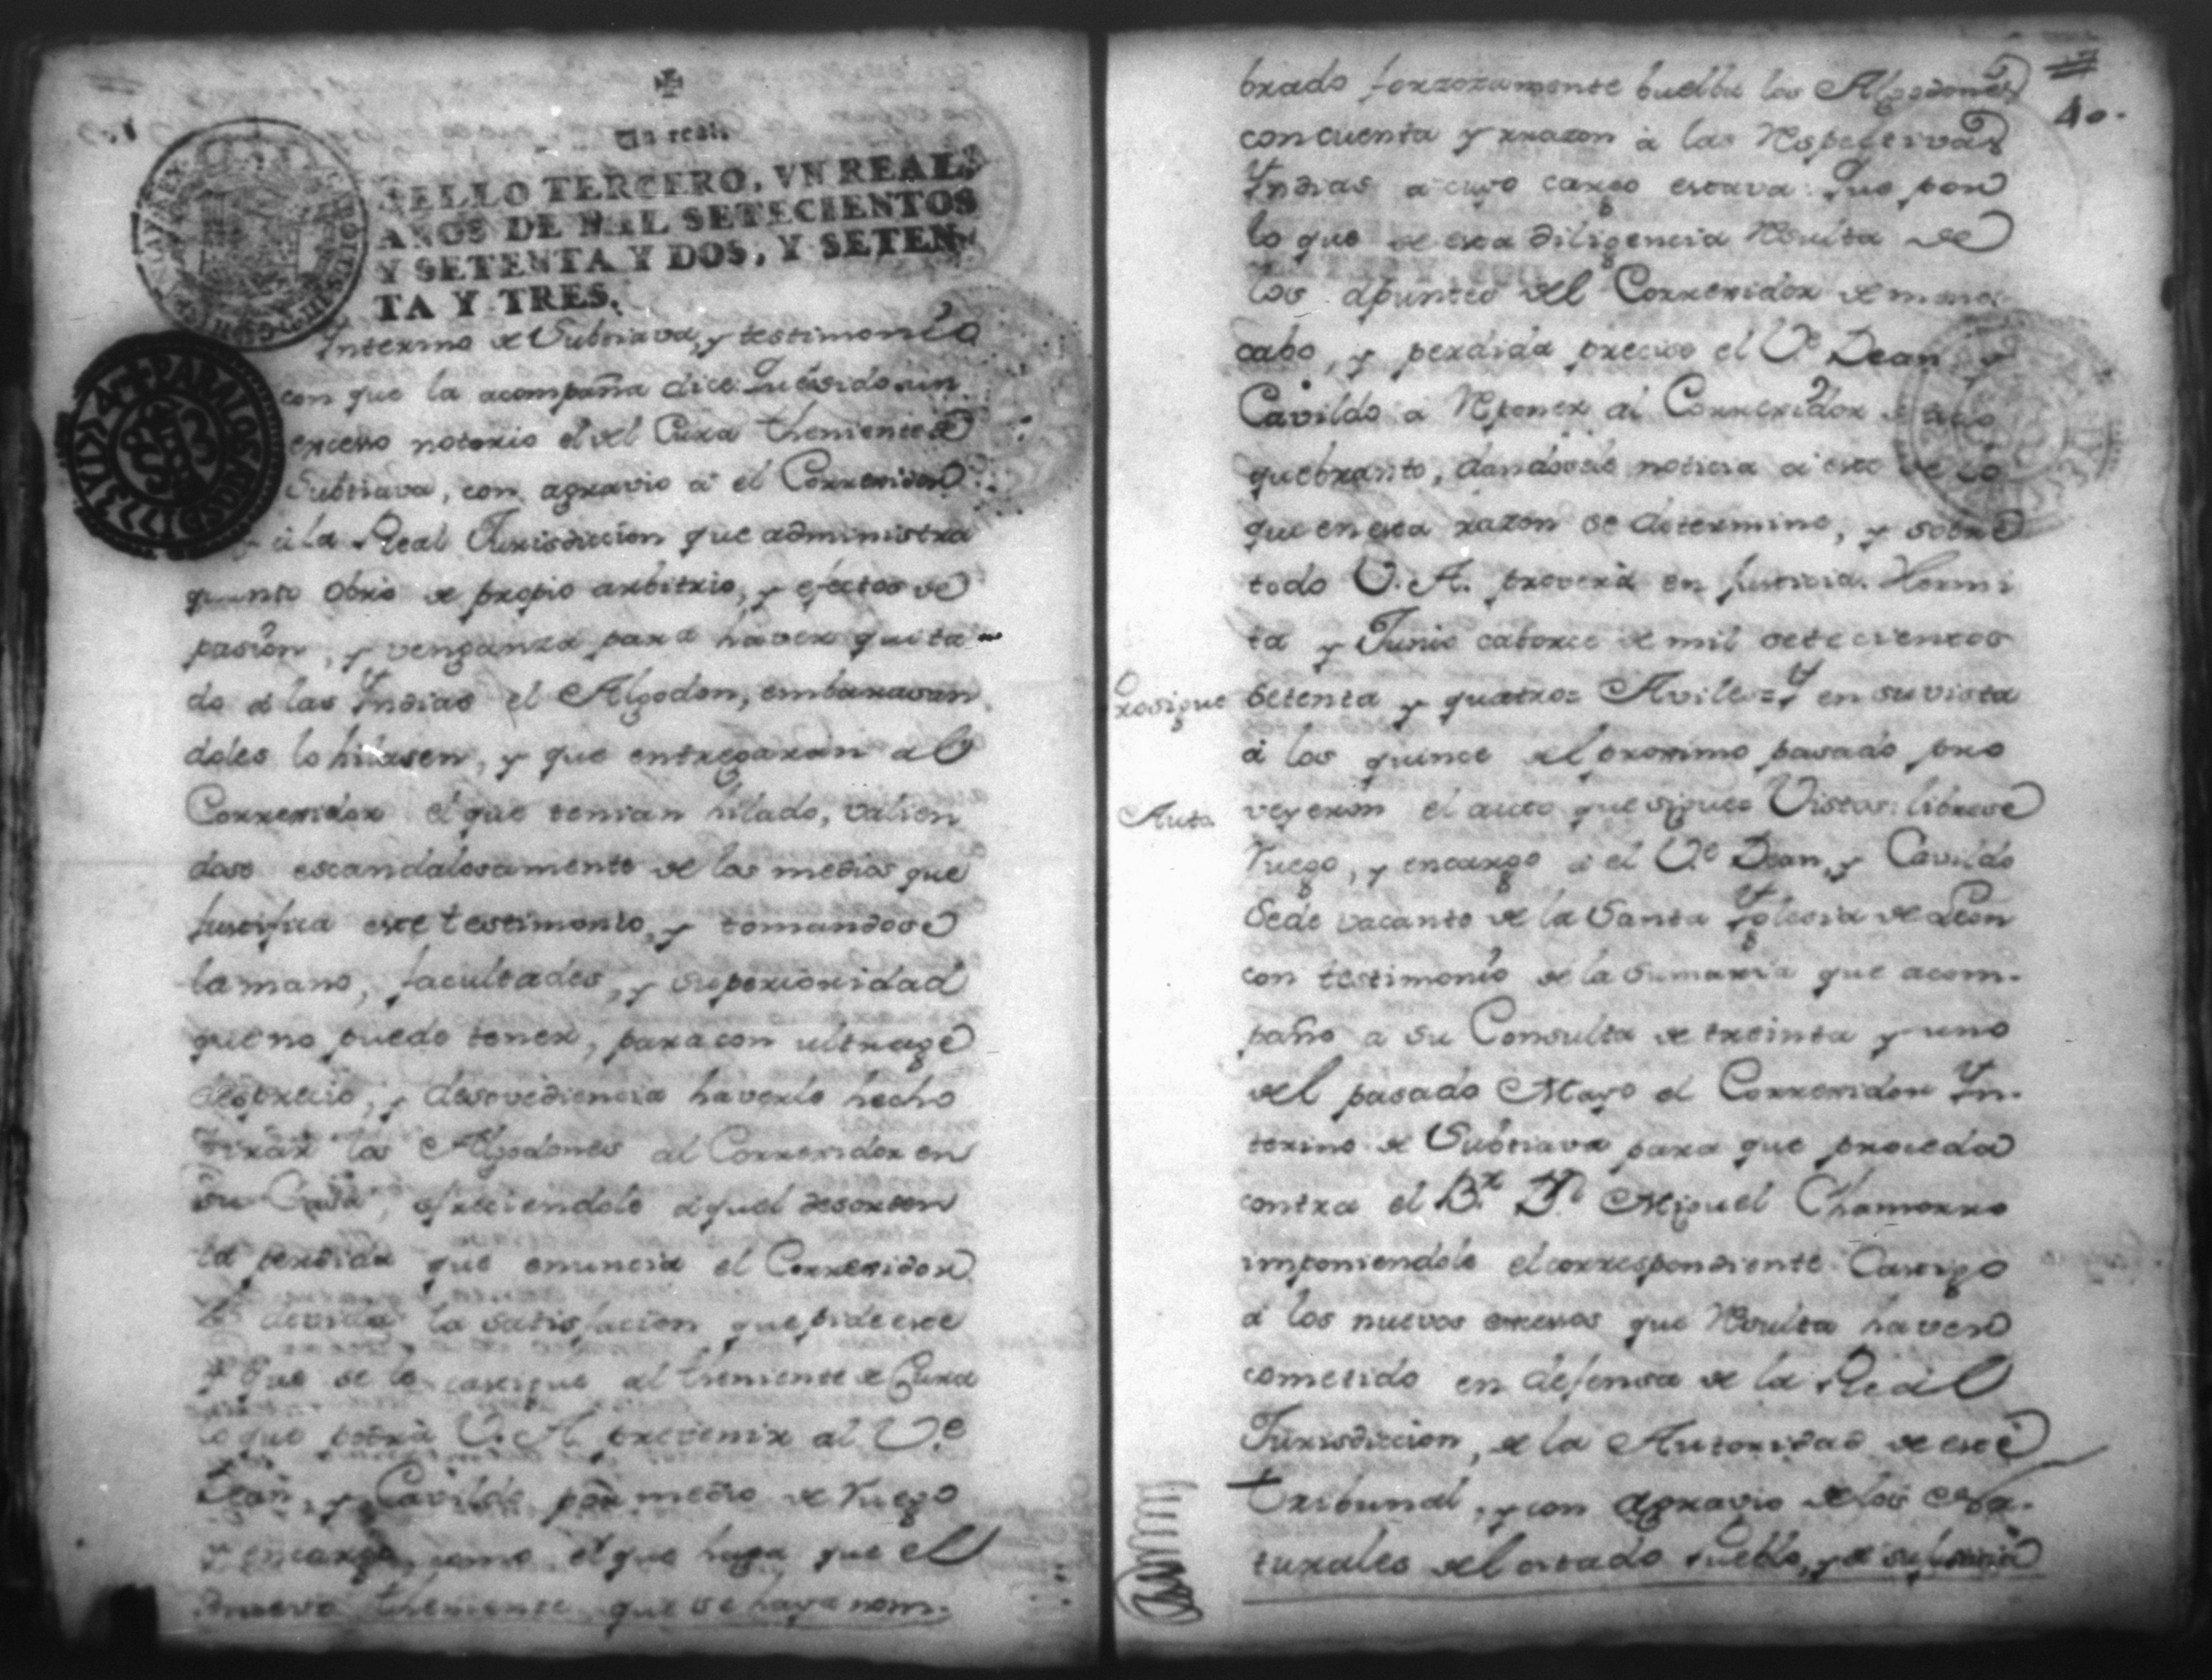 Un real.
SELLO TERCERO, VN REAL,
AÑOS DE MIL SETECIENTOS
Y SETENTA Y DOS, Y SETEN-
TA Y TRES.
PARA LOS AÑOS D 1773 Y 74
Interino de Subtiava, y testimonio
con que la acompaña dice: Que ha sido un
exceso notorio el del Cura theniente de
Subtiava, con agravio á el Corregidor
y á la Real Jurisdiccion que administra
quanto obró de propio arbitrio, y efectos de
pasion, y venganza para haver quita-
do á las Yndias el Algodon, embarazan
doles lo hilasen, y que entregaran al
Corregidor el que tenian hilado, valien
dose escandalosamente de los medios que
justifica este testimonio, y tomandose
la mano, facultades, y superioridad
que no puede tener, para con ultrage
desprecio, y desovediencia haverle hecho
tirar los Algodones al Corregidor en
su Casa, ofreciendole aquel desorden
la perdida que enuncia el Corregidor
Es devida la satisfacion que pide este
y que se le castigue al theniente de Cura
lo que podrá V. A. prevenir al V.e
Dean, y Cavildo por medio de ruego
y encargo, como el que haga que el
nuevo theniente que se haya nom-
5
40.
brado forzozamente buelba los Algodones
con cuenta y rrazon á las Respectivas
Yndias á cuyo cargo estava: Que por
lo que de esta diligencia Resulta de
los apuntes del Corregidor de menos
cabo, y perdida precise el V.e Dean y
Cavildo á Reponer al Corregidor
quebranto, dandosele noticia á este de lo
que en esta razon se determine, y sobre
todo V. A. proverá en justicia. Hermi
ta y Junio catorce de mil setecientos
Prosigue
setenta y quatro= Aviles= Y en su vista
á los quince del proximo pasado pro
Auto.
veyeron el auto que sigue= Vistos: librese
ruego, y encargo á el V.e Dean, y Cavildo
Sede vacante de la Santa Yglesia de Leon
con testimonio de la Sumaria que acom-
paño á su Consulta de treinta y uno
del pasado Mayo el Corregidor Yn-
terino de Subtiava para que proceda
contra el B.r D.n Miguel Chamorro
imponiendole el correspondiente Castigo
á los nuevos excesos que Resulta haver
cometido en defensa de la Real
Jurisdiccion, de la Autoridad de este
Tribunal, y con agravio de los Na-
turales del citado Pueblo, y á su